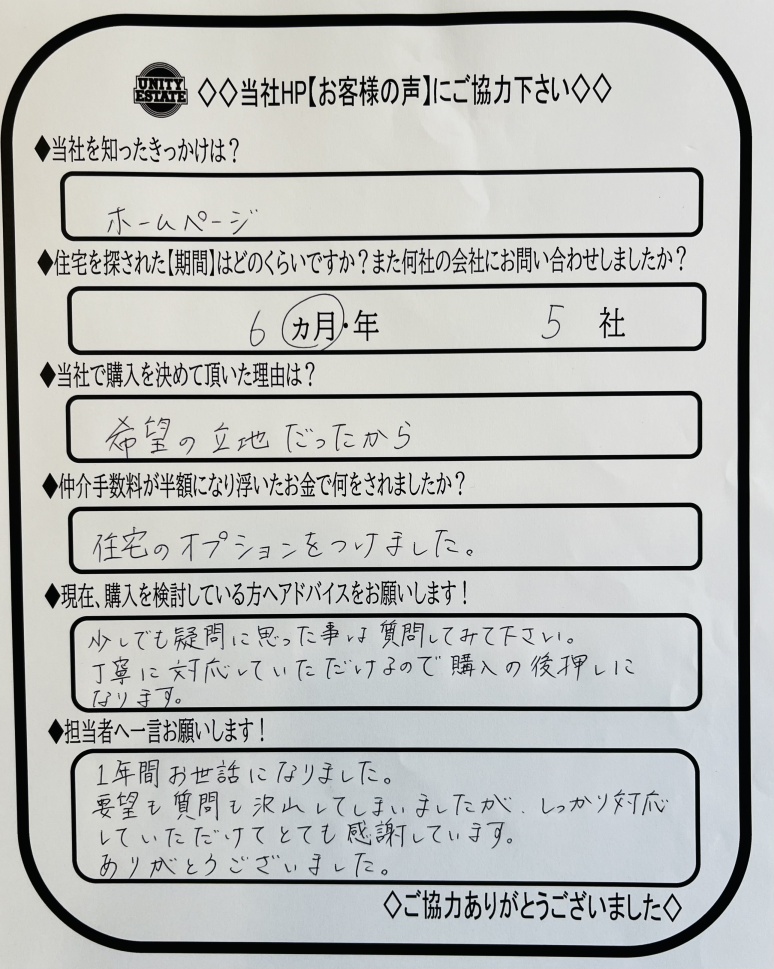 UNITY
ESTATE
◇◇当社HP【お客様の声】にご協力下さい◇◇
◆当社を知ったきっかけは？
ホームページ
◆住宅を探された【期間】はどのくらいですか？また何社の会社にお問い合わせしましたか？
6 ヵ月・年 5 社
◆当社で購入を決めて頂いた理由は？
希望の立地だったから
◆仲介手数料が半額になり浮いたお金で何をされましたか？
住宅のオプションをつけました。
◆現在、購入を検討している方へアドバイスをお願いします！
少しでも疑問に思った事は質問してみて下さい。
丁寧に対応していただけるので購入の後押しに
なります。
◆担当者へ一言お願いします！
1年間お世話になりました。
要望も質問も沢山してしまいましたが、しっかり対応
していただけてとても感謝しています。
ありがとうございました。
◇ご協力ありがとうございました◇